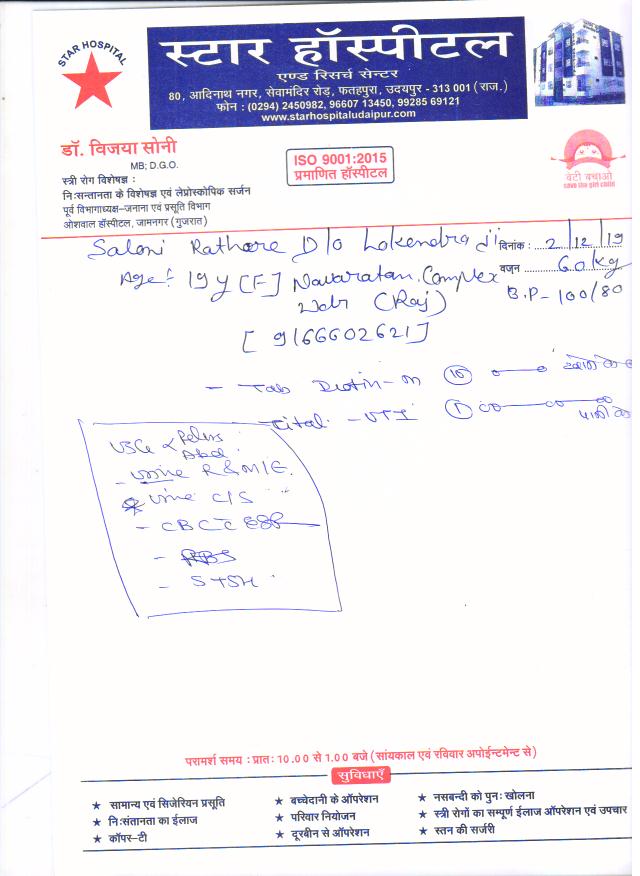 STAR HOSPITAL
स्टार हॉस्पीटल
एण्ड रिसर्च सेन्टर
80, आदिनाथ नगर, सेवामंदिर रोड़, फतहपुरा, उदयपुर - 313 001 (राज.)
फोन : (0294) 2450982, 96607 13450, 99285 69121
www.starhospitaludaipur.com
डॉ. विजया सोनी
MB; D.G.O.
स्त्री रोग विशेषज्ञ :
नि:सन्तानता के विशेषज्ञ एवं लेप्रोस्कोपिक सर्जन
पूर्व विभागाध्यक्ष-जनाना एवं प्रसूति विभाग
ओशवाल हॉस्पीटल, जामनगर (गुजरात)
ISO 9001:2015
प्रमाणित हॉस्पीटल
बेटी बचाओ
save the girl child
Saloni Rathore D/o Lokendra Ji दिनांक : 2/12/19
Age: 19 y [F] Navaratan Complex वजन 60 kg
(Raj) B.P- 100/80
[9166602621]
- Tab
Cital - UTI
USG Pelvis
- Urine R & M/E.
Urine C/S
- CBC ESR
- RBS
- STSH
परामर्श समय : प्रात: 10.00 से 1.00 बजे (सांयकाल एवं रविवार अपोईन्टमेन्ट से)
सुविधाएँ
★ सामान्य एवं सिजेरियन प्रसूति ★ बच्चेदानी के ऑपरेशन ★ नसबन्दी को पुन: खोलना
★ नि:संतानता का ईलाज ★ परिवार नियोजन ★ स्त्री रोगों का सम्पूर्ण ईलाज ऑपरेशन एवं उपचार
★ कॉपर-टी ★ दूरबीन से ऑपरेशन ★ स्तन की सर्जरी